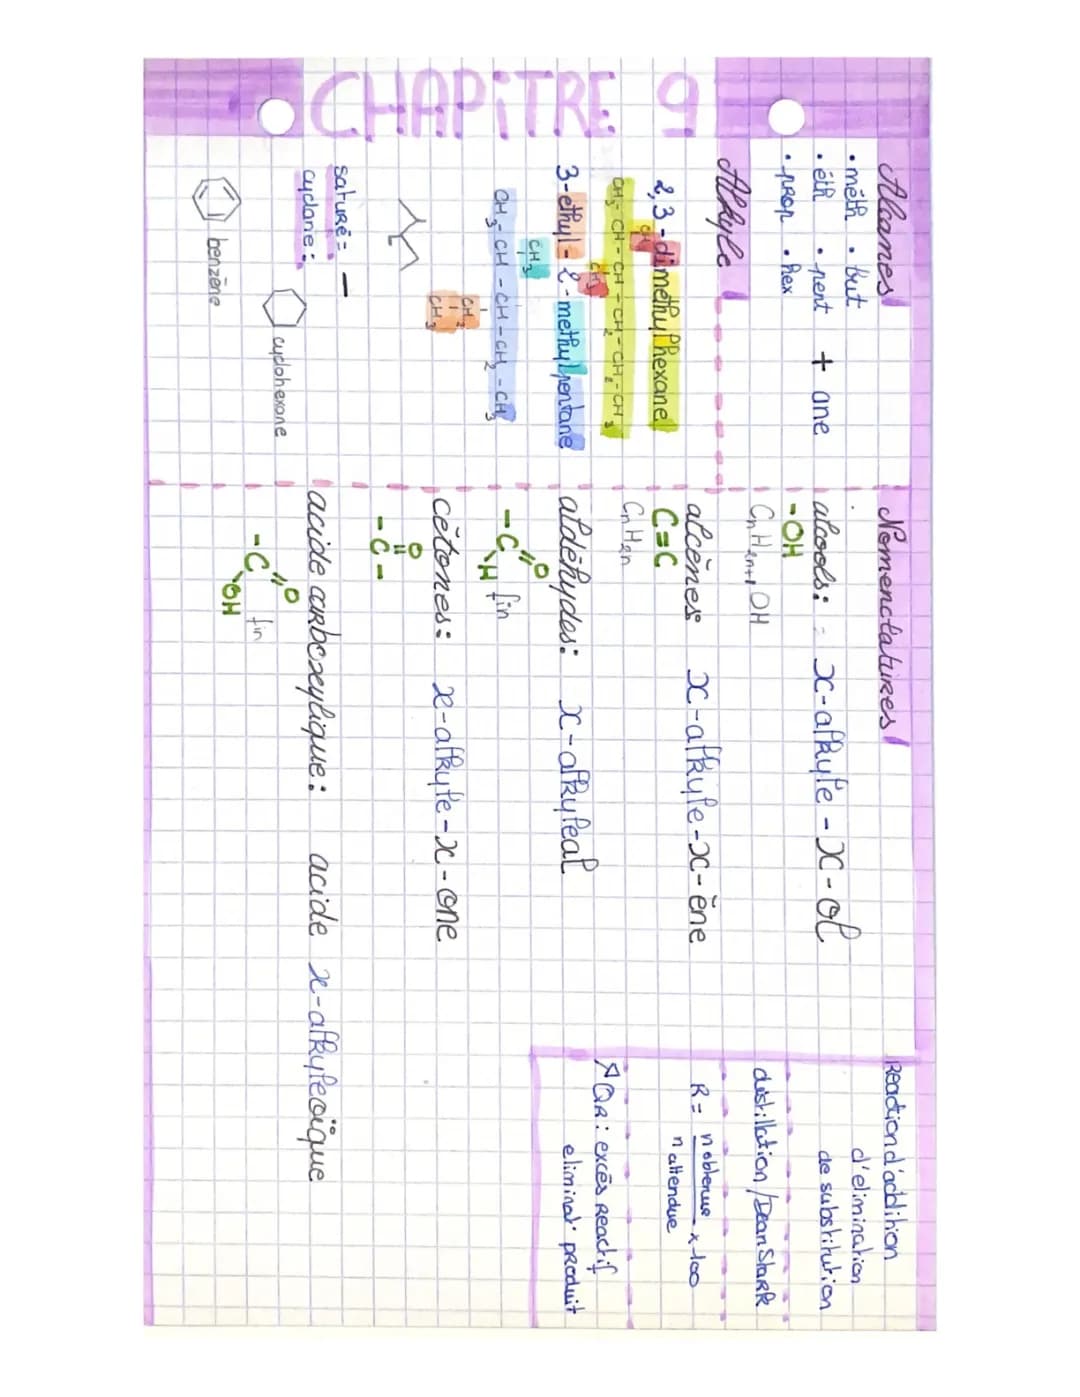 CHAPITRE 9
Alcanes
• méth • but
• éth • pent + ane
• prop • hex
Alkyle
2,3-diméthylhexane
CH3
CH3-CH-CH-CH2-CH2-CH3
CH3
3-ethyl-2-methylpentane
CH3
CH3-CH-CH-CH2-CH3
CH2
CH3
saturé = —
cyclane :
cyclohexane
benzène
Nomenclatures
alcools : x-alkyle-x-ol
-OH
CnH2n+1OH
alcènes x-alkyle-x-ène
C=C
CnH2n
aldéhydes: x-alkyleal
O
-C
H fin
cétones: x-alkyle-x-one
O
-C-
acide carboxylique: acide x-alkyleoïque
O
-C fin
OH
Reaction d'addition
d'elimination
de substitution
distillation/Dean Stark
R = n obtenue x 100
n attendue
QR: excès reactif
eliminat° produit